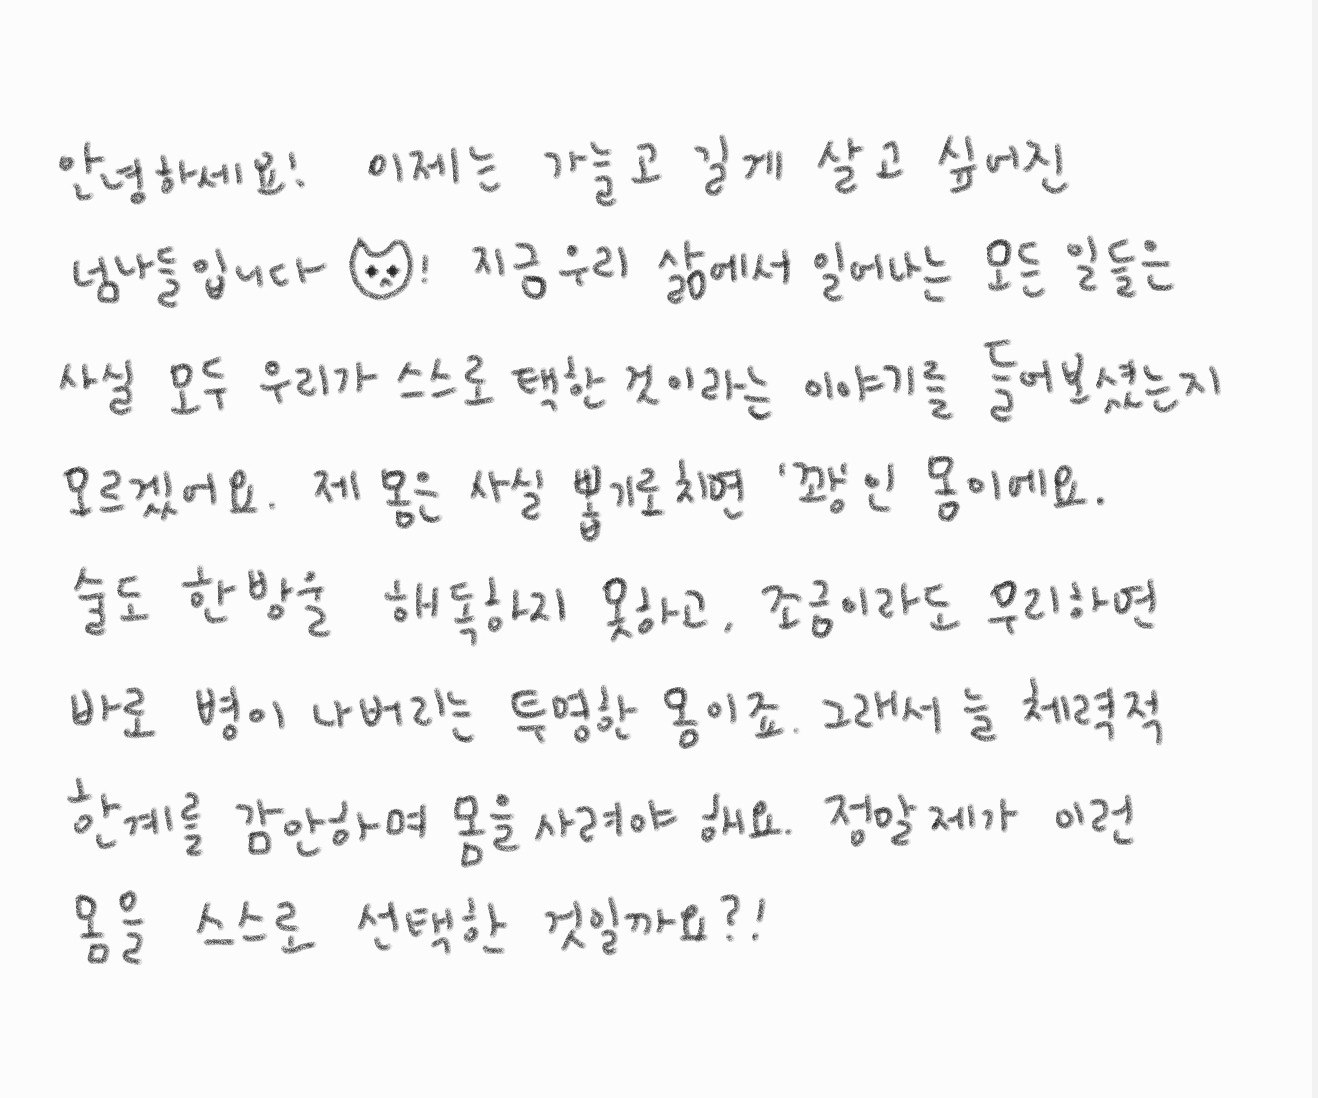 안녕하세요! 이제는 가늘고 길게 살고 싶어진
넘나들입니다! 지금 우리 삶에서 일어나는 모든 일들은
사실 모두 우리가 스스로 택한 것이라는 이야기를 들어보셨는지
모르겠어요. 제 몸은 사실 뽑기로치면 '꽝'인 몸이에요.
술도 한방울 해독하지 못하고, 조금이라도 무리하면
바로 병이 나버리는 투명한 몸이죠. 그래서 늘 체력적
한계를 감안하며 몸을 사려야 해요. 정말 제가 이런
몸을 스스로 선택한 것일까요?!